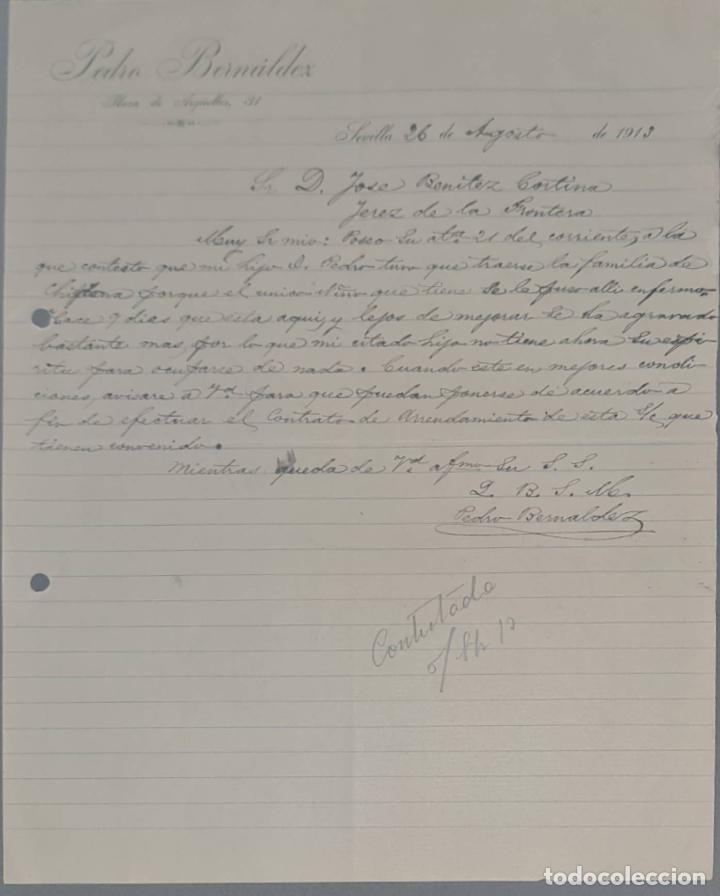 Pedro Bernáldez
Plaza de Argüelles, 31
Sevilla 26 de Agosto de 1913
Sr D. Jose Benitez Cortina
Jerez de la Frontera
Muy Sr mio: Poseo su atta 21 del corriente, a la
que contesto que mi hijo D. Pedro tuvo que traerse la familia de
Chipiona porque el unico niño que tiene se le puso alli enfermo.
Hace 9 dias que esta aqui, y lejos de mejorar se ha agravado
bastante mas, por lo que mi citado hijo no tiene ahora su espi-
ritu para ocuparce de nada. Cuando este en mejores condi-
ciones, avisare a Vd. para que puedan ponerse de acuerdo a
fin de efectuar el Contrato de Arrendamiento de esta S/c que
tienen convenido.
Mientras queda de Vd. afmo Su S. S.
Q. B. S. M.
Pedro Bernaldez
Contestada
todocoleccion.net